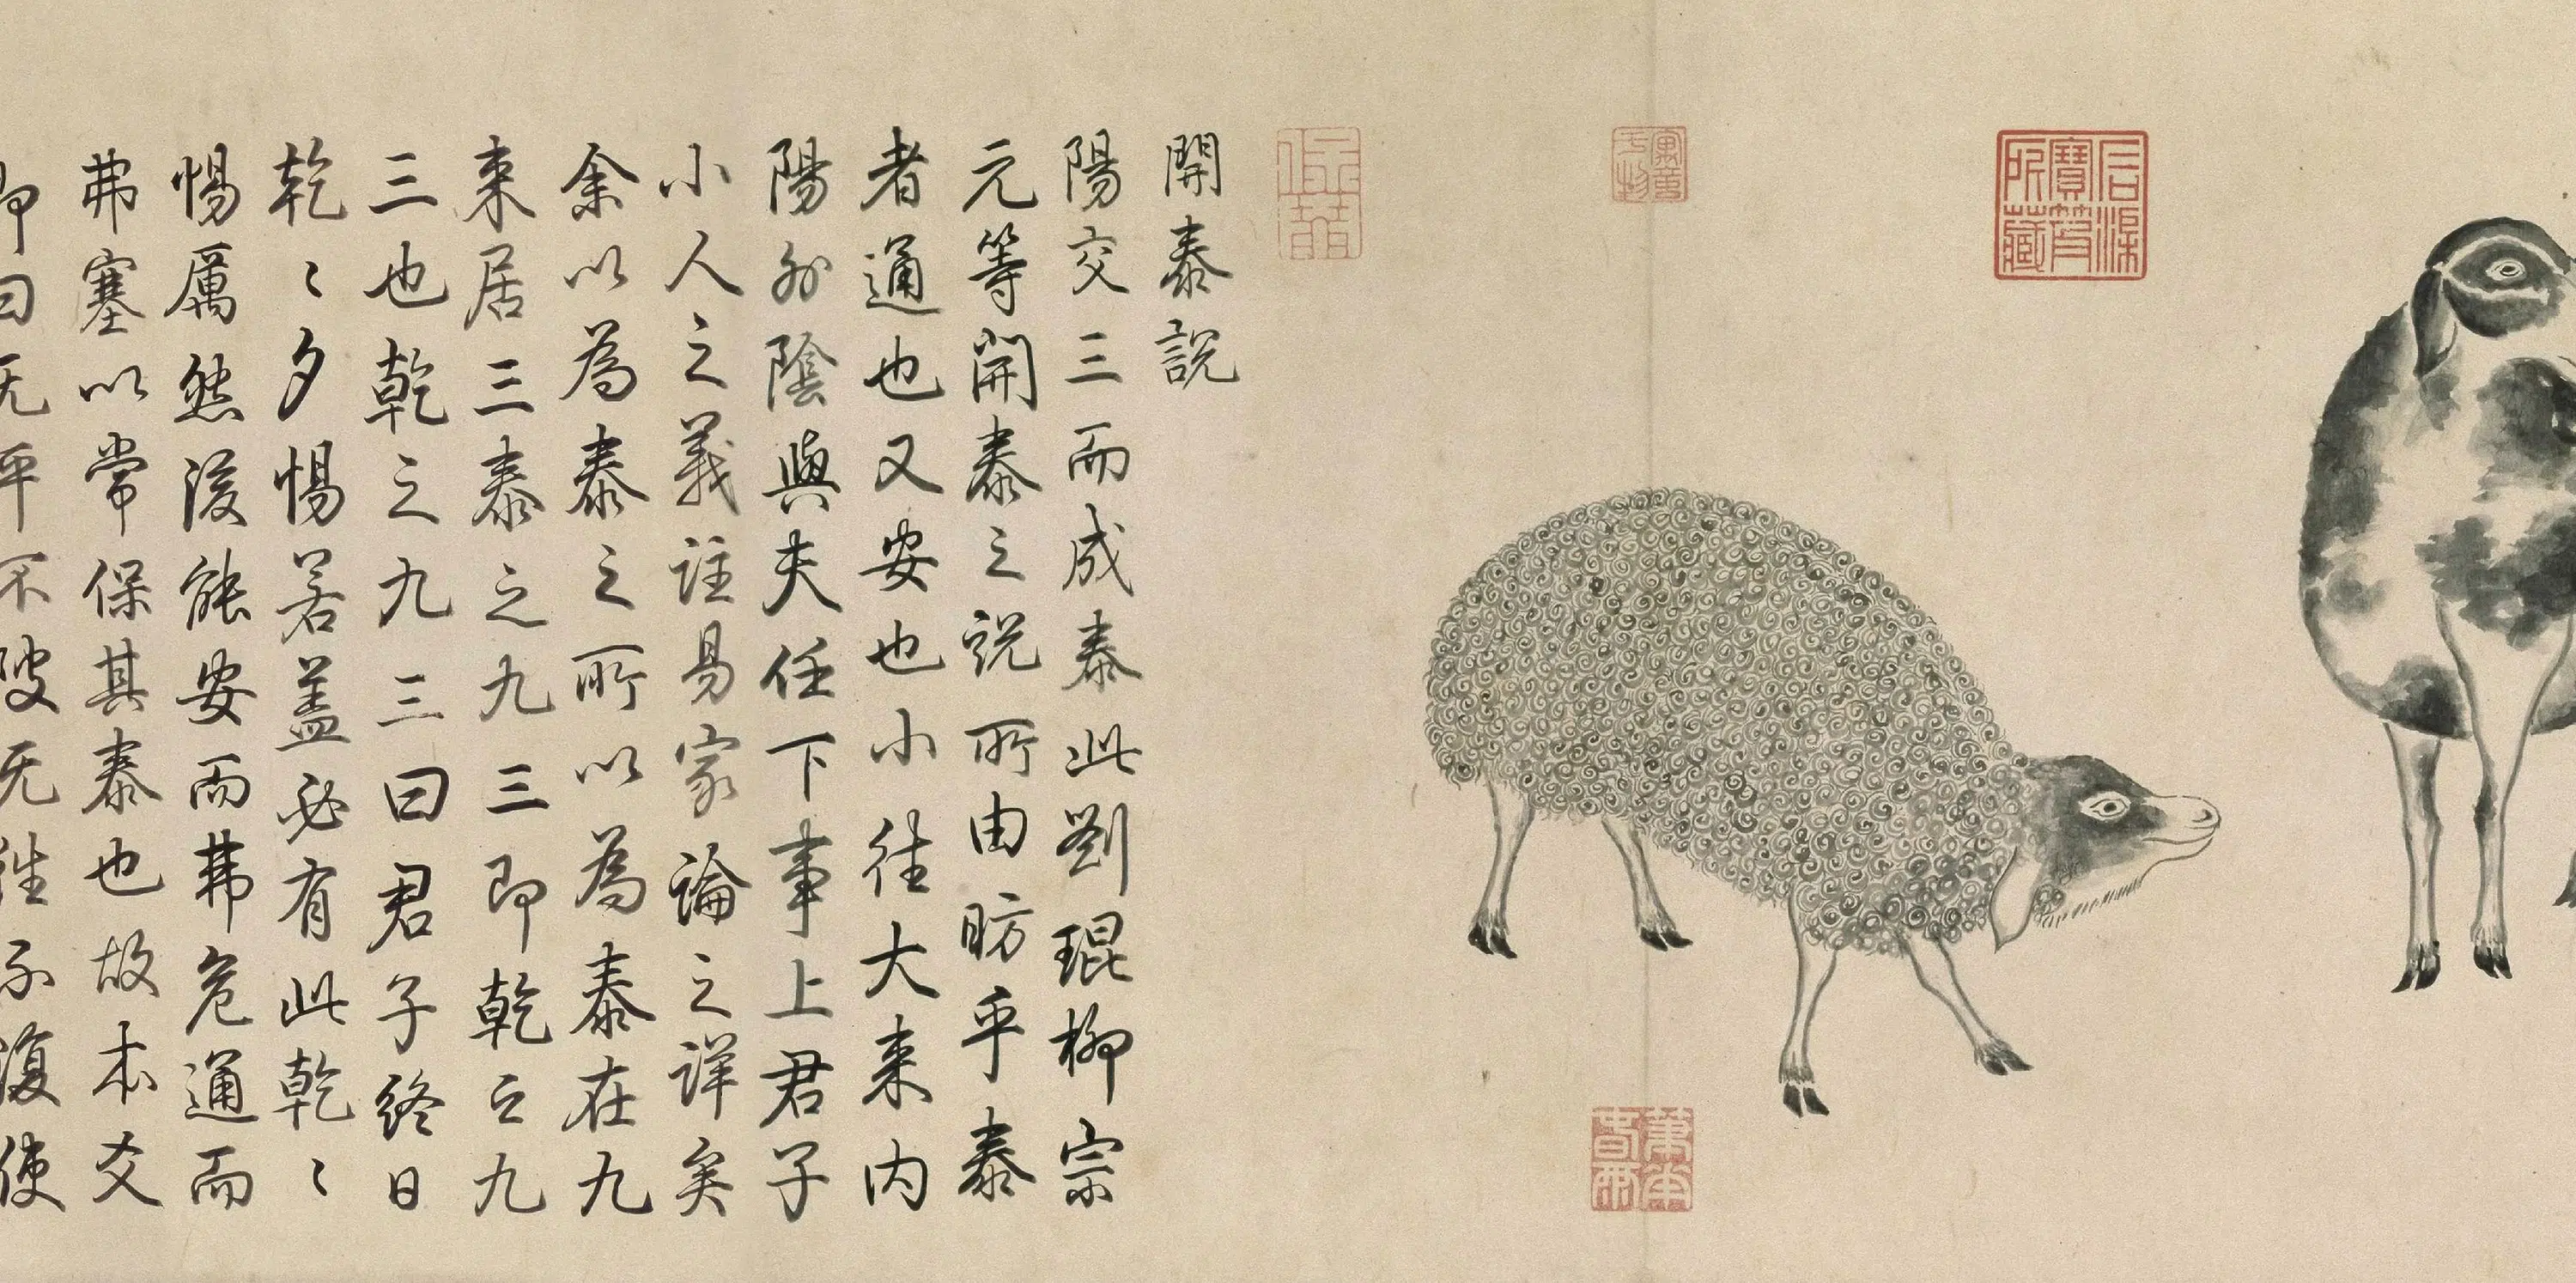 開泰說
陽交三而成泰此劉琨柳宗
元等開泰之說所由昉乎泰
者通也又安也小往大来内
陽外陰與夫任下事上君子
小人之義註易家論之詳矣
余以為泰之所以為泰在九
来居三泰之九三即乾之九
三也乾之九三曰君子終日
乾〻夕惕若盖必有此乾〻
惕厲然後能安而弗危通而
弗塞以常保其泰也故本爻
即曰无平不陂无往不復使
信天主人
寓意于物
古澡寶笈所藏